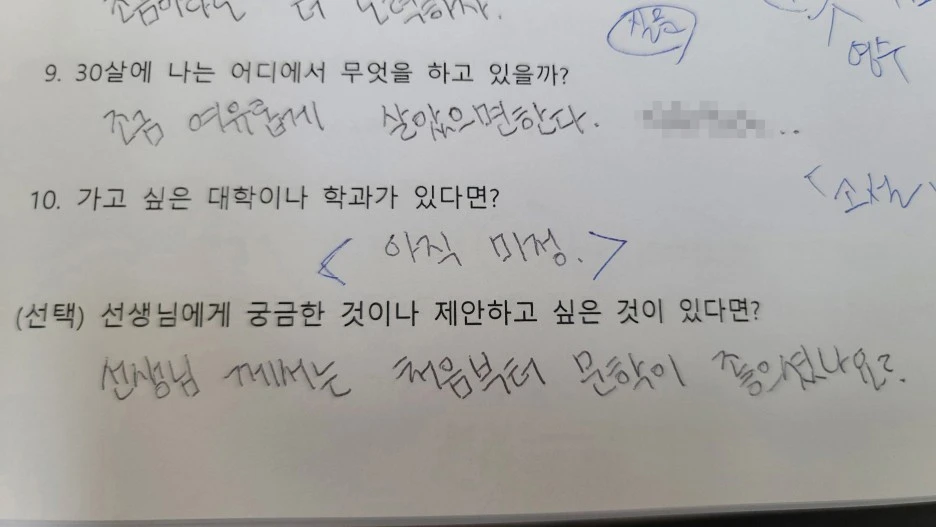 조금이라도 더 노력하자.
질문
영수
9. 30살에 나는 어디에서 무엇을 하고 있을까?
조금 여유롭게 살았으면한다. ..
10. 가고 싶은 대학이나 학과가 있다면?
<소설
< 아직 미정. >
(선택) 선생님에게 궁금한 것이나 제안하고 싶은 것이 있다면?
선생님 께서는 처음부터 문학이 좋으셨나요?